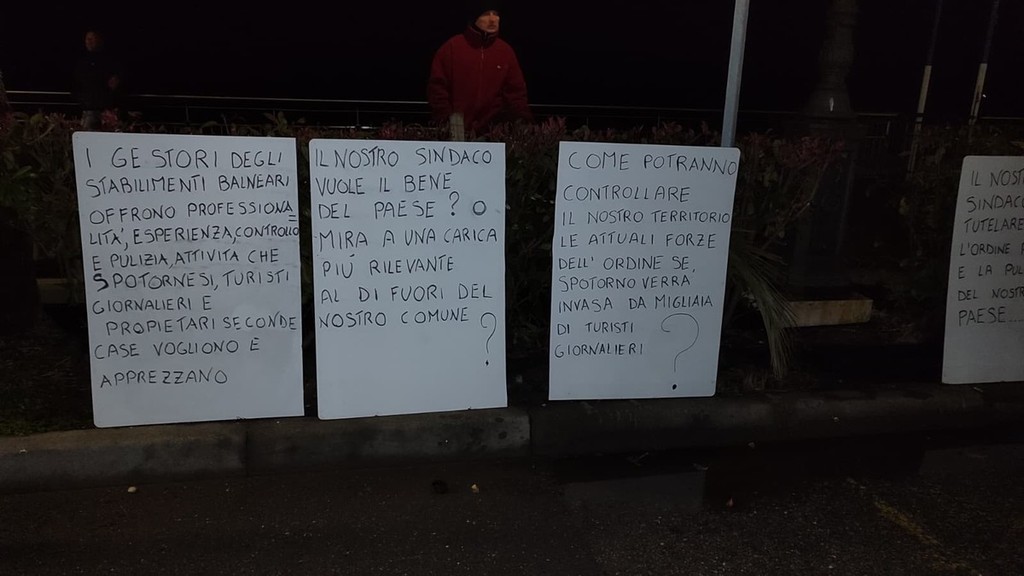 I GESTORI DEGLI
STABILIMENTI BALNEARI
OFFRONO PROFESSIONA=
LITÀ, ESPERIENZA, CONTROLLO
E PULIZIA, ATTIVITA CHE
SPOTORNESI, TURISTI
GIORNALIERI E
PROPIETARI SECONDE
CASE VOGLIONO E
APPREZZANO
IL NOSTRO SINDACO
VUOLE IL BENE
DEL PAESE? O
MIRA A UNA CARICA
PIÚ RILEVANTE
AL DI FUORI DEL
NOSTRO COMUNE ?
COME POTRANNO
CONTROLLARE
IL NOSTRO TERRITORIO
LE ATTUALI FORZE
DELL'ORDINE SE,
SPOTORNO VERRÀ
INVASA DA MIGLIAIA
DI TURISTI
GIORNALIERI ?
IL
SINDACO
TUTELARE
L'ORDINE
E LA
DEL
PAESE...